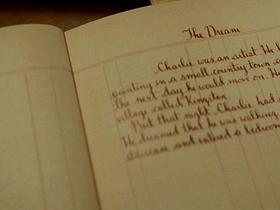 The Dream
Charlie was an artist. He
painting in a small country town
The next day he would move on. He
village called Kingston
But that night Charlie had
He dreamed that he was walking
staircase and entered a bedroom